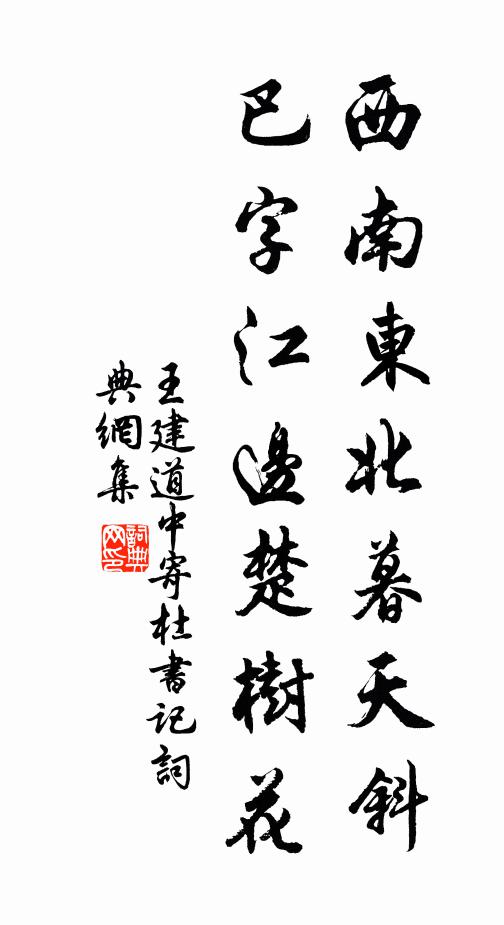 西南東北暮天斜
巴字江邊楚樹花
王建道中寄杜書記詞
典網集
詞典
网印